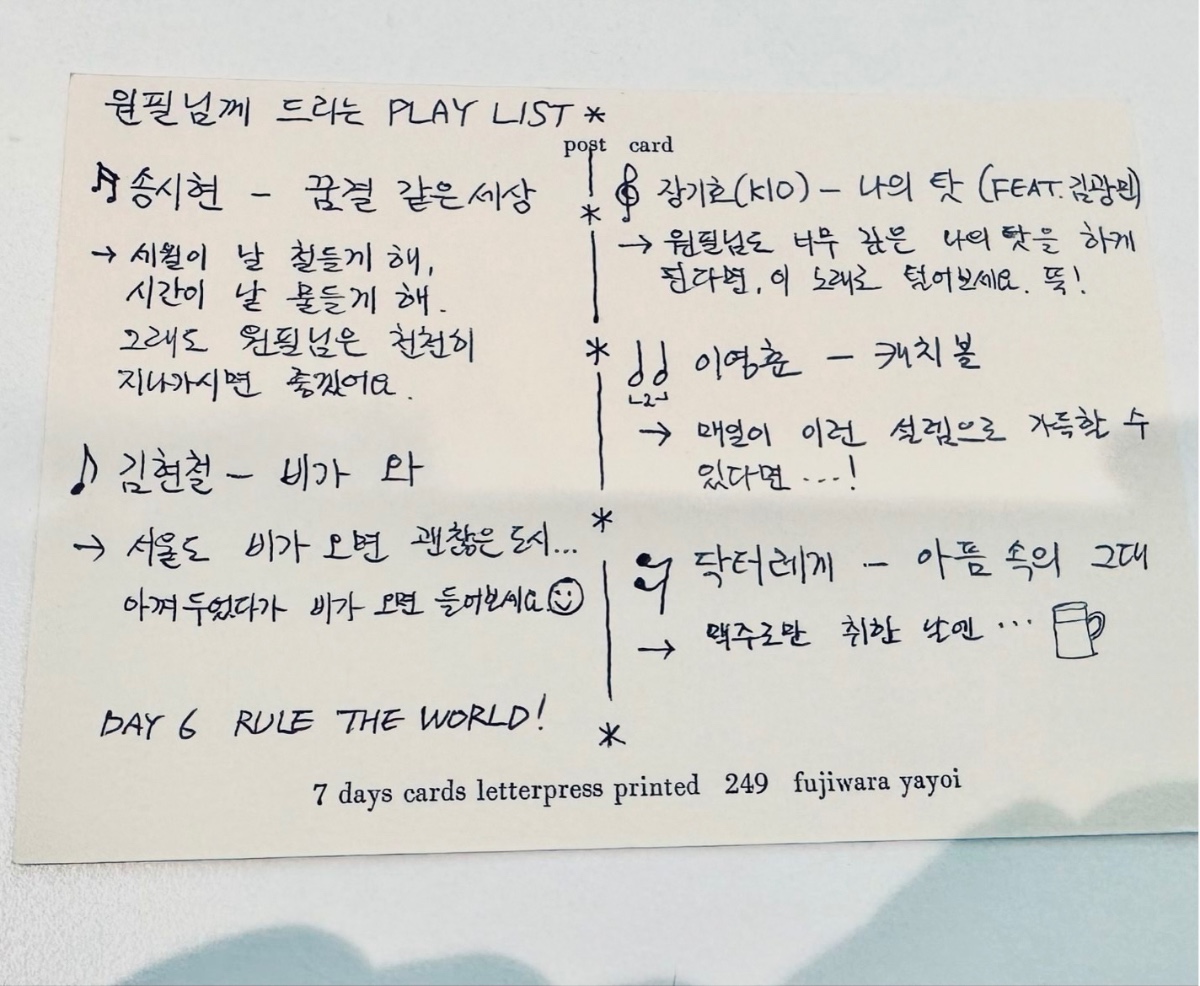 원필님께 드리는 PLAY LIST *
post card
송시현 - 꿈결 같은 세상
→ 세월이 날 철들게 해,
시간이 날 물들게 해.
그래도 원필님은 천천히
지나가시면 좋겠어요.
김현철 - 비가 와
→ 서울도 비가 오면 괜찮은 도시...
아껴 두었다가 비가 오면 들어보세요.
DAY 6 RULE THE WORLD!
장기호(KIO) - 나의 탓 (FEAT.김광민)
→ 원필님도 너무 깊은 나의 탓을 하게
된다면, 이 노래로 털어보세요. 뚝!
이영훈 - 캐치볼
-2-
→ 매일이 이런 설렘으로 가득할 수
있다면...!
닥터레게 - 아픔 속의 그대
→ 맥주로만 취한 날엔 ...
7 days cards letterpress printed 249 fujiwara yayoi